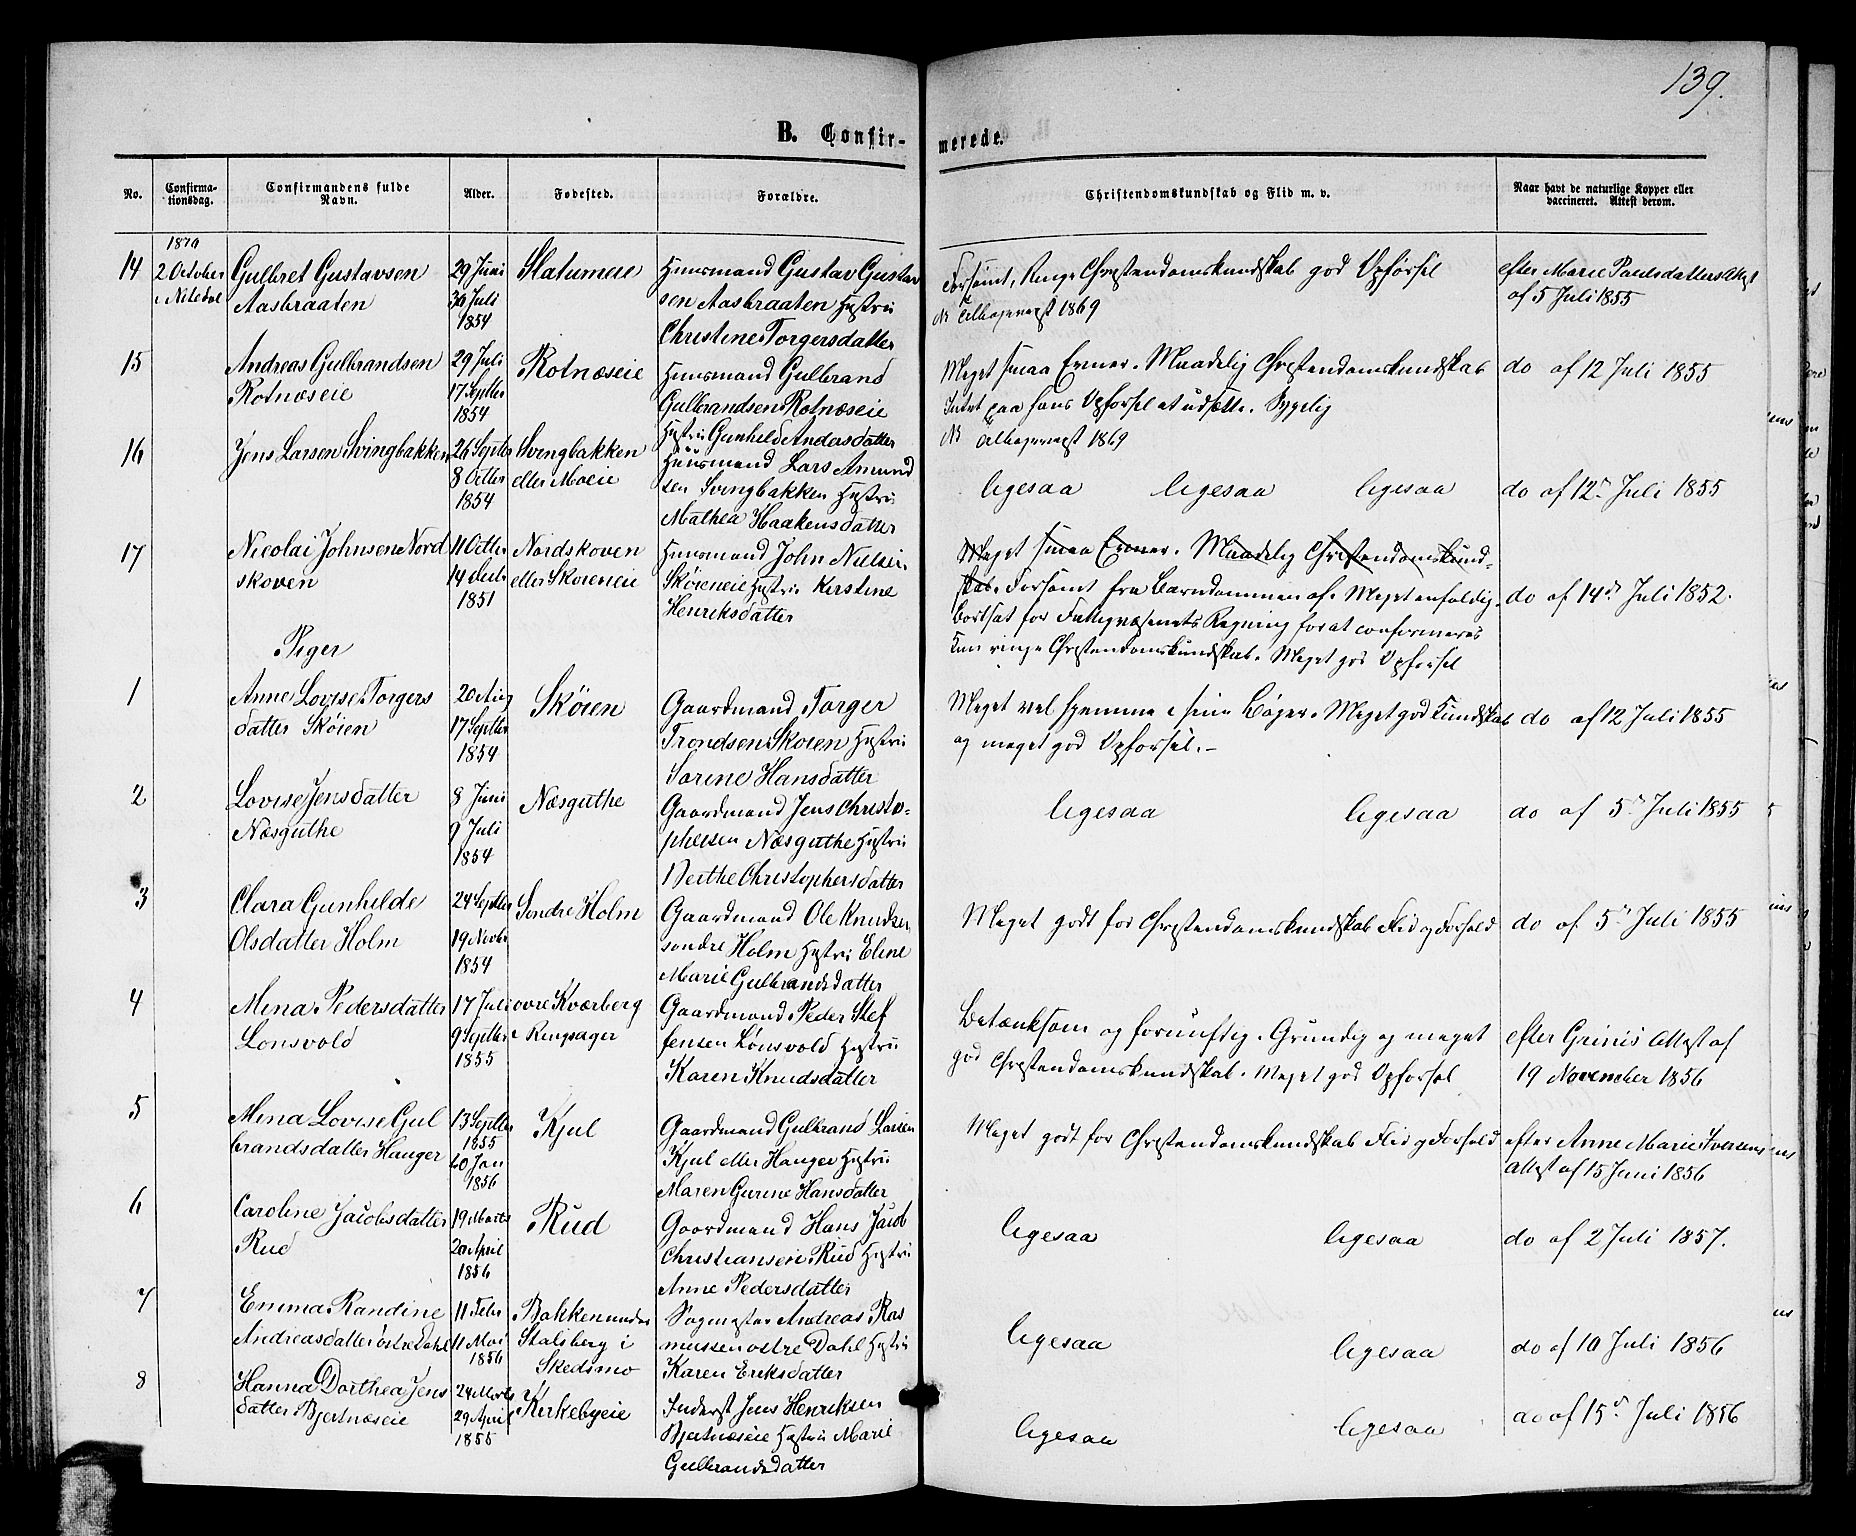 139.
B. Confirmerede.
No.
Confirmationsdag.
Confirmandens fulde Navn.
Alder.
Fødested.
Forældre.
Christendomskundskab og Flid m. v.
Naar havt de naturlige Kopper eller vaccineret. Attest derom.
1870
14
2 October
i Nitedal
Gulbret Gustavsen
Aasbraaten
29 Juni
30 Juli
1854
Slatumeie
Huusmand Gustav Gustav
sen Aasbraaten Hustru
Christine Torgersdatter
Forsømt, Ringe Christendomskundskab god Opførsel
1869
efter Marie Paulsdatters Attest
af 5 Juli 1855
15
Andreas Gulbrandsen
Rotnæseie
29 Juli
17 Septbr
1854
Rotnæseie
Huusmand Gulbrand
Gulbrandsen Rotnæseie
Hustru Gunhild Andersdatter
Meget smaa Evner. Maadelig Christendomskundskab
Intet paa hans Opførsel at udsætte. Sygelig
1869
do af 12 Juli 1855
16
Jens Larsen Svingbakken
26 Septbr
8 Octbr
1854
Svingbakken
eller Moeie
Huusmand Lars Amund
sen Svingbakken Hustru
Mathea Haakensdatter
ligesaa ligesaa ligesaa
do af 12te Juli 1855
17
Nicolai Johnsen Nord
skoven
11 Octbr
14 Decbr
1851
Nordskoven
eller Skøieneie
Huusmand John Nielsen
Skøieneie Hustru Kirstine
Henriksdatter
Meget smaa Evner. Maadelig Christendomskund-
skab. Forsømt fra Barndommen af. Meget enfoldig.
Bortsat for Fattigvæsenets Regning for at confirmeres
Kun ringe Christendomskundskab. Meget god Opførsel
do af 14de Juli 1852.
Piger
1
Anne Lovise Torgers
datter Skøien
20 Aug
17 Septbr
1854
Skøien
Gaardmand Torger
Trondsen Skøien Hustru
Sørine Hansdatter
Meget vel hjemme i sine Bøger. Meget god Kundskab
og meget god Opførsel. –
do af 12 Juli 1855
2
Lovise Jensdatter
Næsguthe
8 Juni
9 Juli
1854
Næsguthe
Gaardmand Jens Christo-
phersen Næsguthe Hustru
Berthe Christophersdatter
ligesaa ligesaa
do af 5te Juli 1855
3
Clara Gunhilde
Olsdatter Holm
24 Septbr
19 Novbr
1854
Søndre Holm
Gaardmand Ole Knudsen
søndre Holm Hustru Eline
Marie Gulbrandsdatter
Meget godt for Christendomskundskab Flid og Forhold
do af 5te Juli 1855
4
Mina Pedersdatter
Lønsvold
17 Juli
9 Septbr
1855
øvre Kværberg
i Ringsager
Gaardmand Peder Stef
fensen Lønsvold Hustru
Karen Knudsdatter
Betænksom og fornuftig. Grundig og meget
god Christendomskundskab. Meget god Opførsel
efter Grinis Attest af
19 November 1856
5
Mina Lovise Gul
brandsdatter Hauger
13 Septbr
1855
20 Jan
1856
Kjul
Gaardmand Gulbrand Larsen
Kjul eller Hauger Hustru
Maren Gurine Hansdatter
Meget godt for Christendomskundskab Flid og Forhold
efter Anne Marie Iversens
Attest af 15 Juni 1856
6
Caroline Jacobsdatter
Rud
19 Marts
20 April
1856
Rud
Gaardmand Hans Jacob
Christiansen Rud Hustru
Anne Pedersdatter
ligesaa ligesaa
do af 2 Juli 1857.
7
Emma Randine
Andreasdatter østre Dahl
11 Febr
11 Mai
1856
Bakken under
Stalsberg i
Skedsmo
Sagmester Andreas Ras
mussen østre Dahl Hustru
Karen Eriksdatter
ligesaa ligesaa
do af 10 Juli 1856
8
Hanna Dorthea Jens
datter Bjertnæseie
24 Marts
29 April
1855
Kirkebyeie
Inderst Jens Henriksen
Bjertnæseie Hustru Marie
Gulbrandsdatter
ligesaa ligesaa
do af 15de Juli 1856